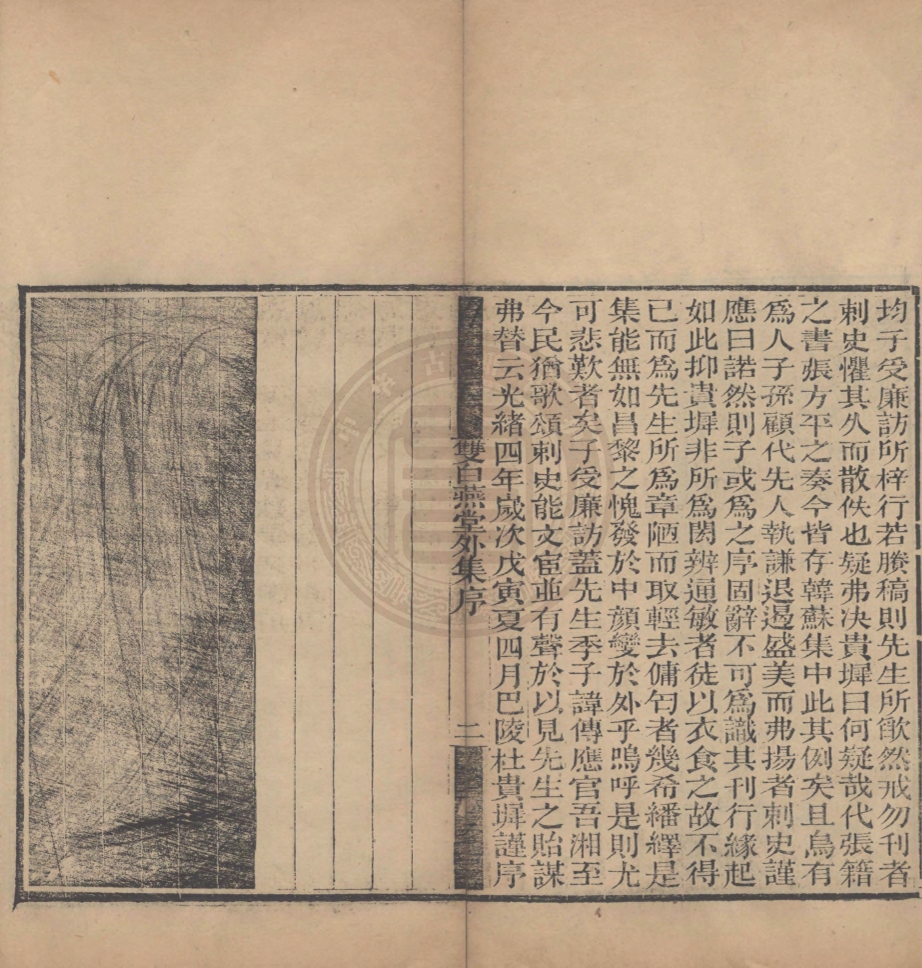 均子受廉訪所梓行若賸稿則先生所歉然戒勿刊者
刺史懼其久而散佚也疑弗决貴墀曰何疑哉代張籍
之書張方平之奏今皆存韓蘇集中此其例矣且烏有
爲人子孫顧代先人執謙退遏盛美而弗揚者刺史謹
應曰諾然則子或爲之序固辭不可爲識其刊行緣起
如此抑貴墀非所爲閎辨逼敏者徒以衣食之故不得
已而爲先生所爲章陋而取輕去傭匄者幾希繙繹是
集能無如昌黎之愧發於中顏變於外乎嗚呼是則尤
可悲歎者矣子受廉訪蓋先生季子諱傳應官吾湘至
今民猶歌頌刺史能文宦並有聲於以見先生之貽謀
弗替云光緒四年歲次戊寅夏四月巴陵杜貴墀謹序
雙白燕堂外集序
二